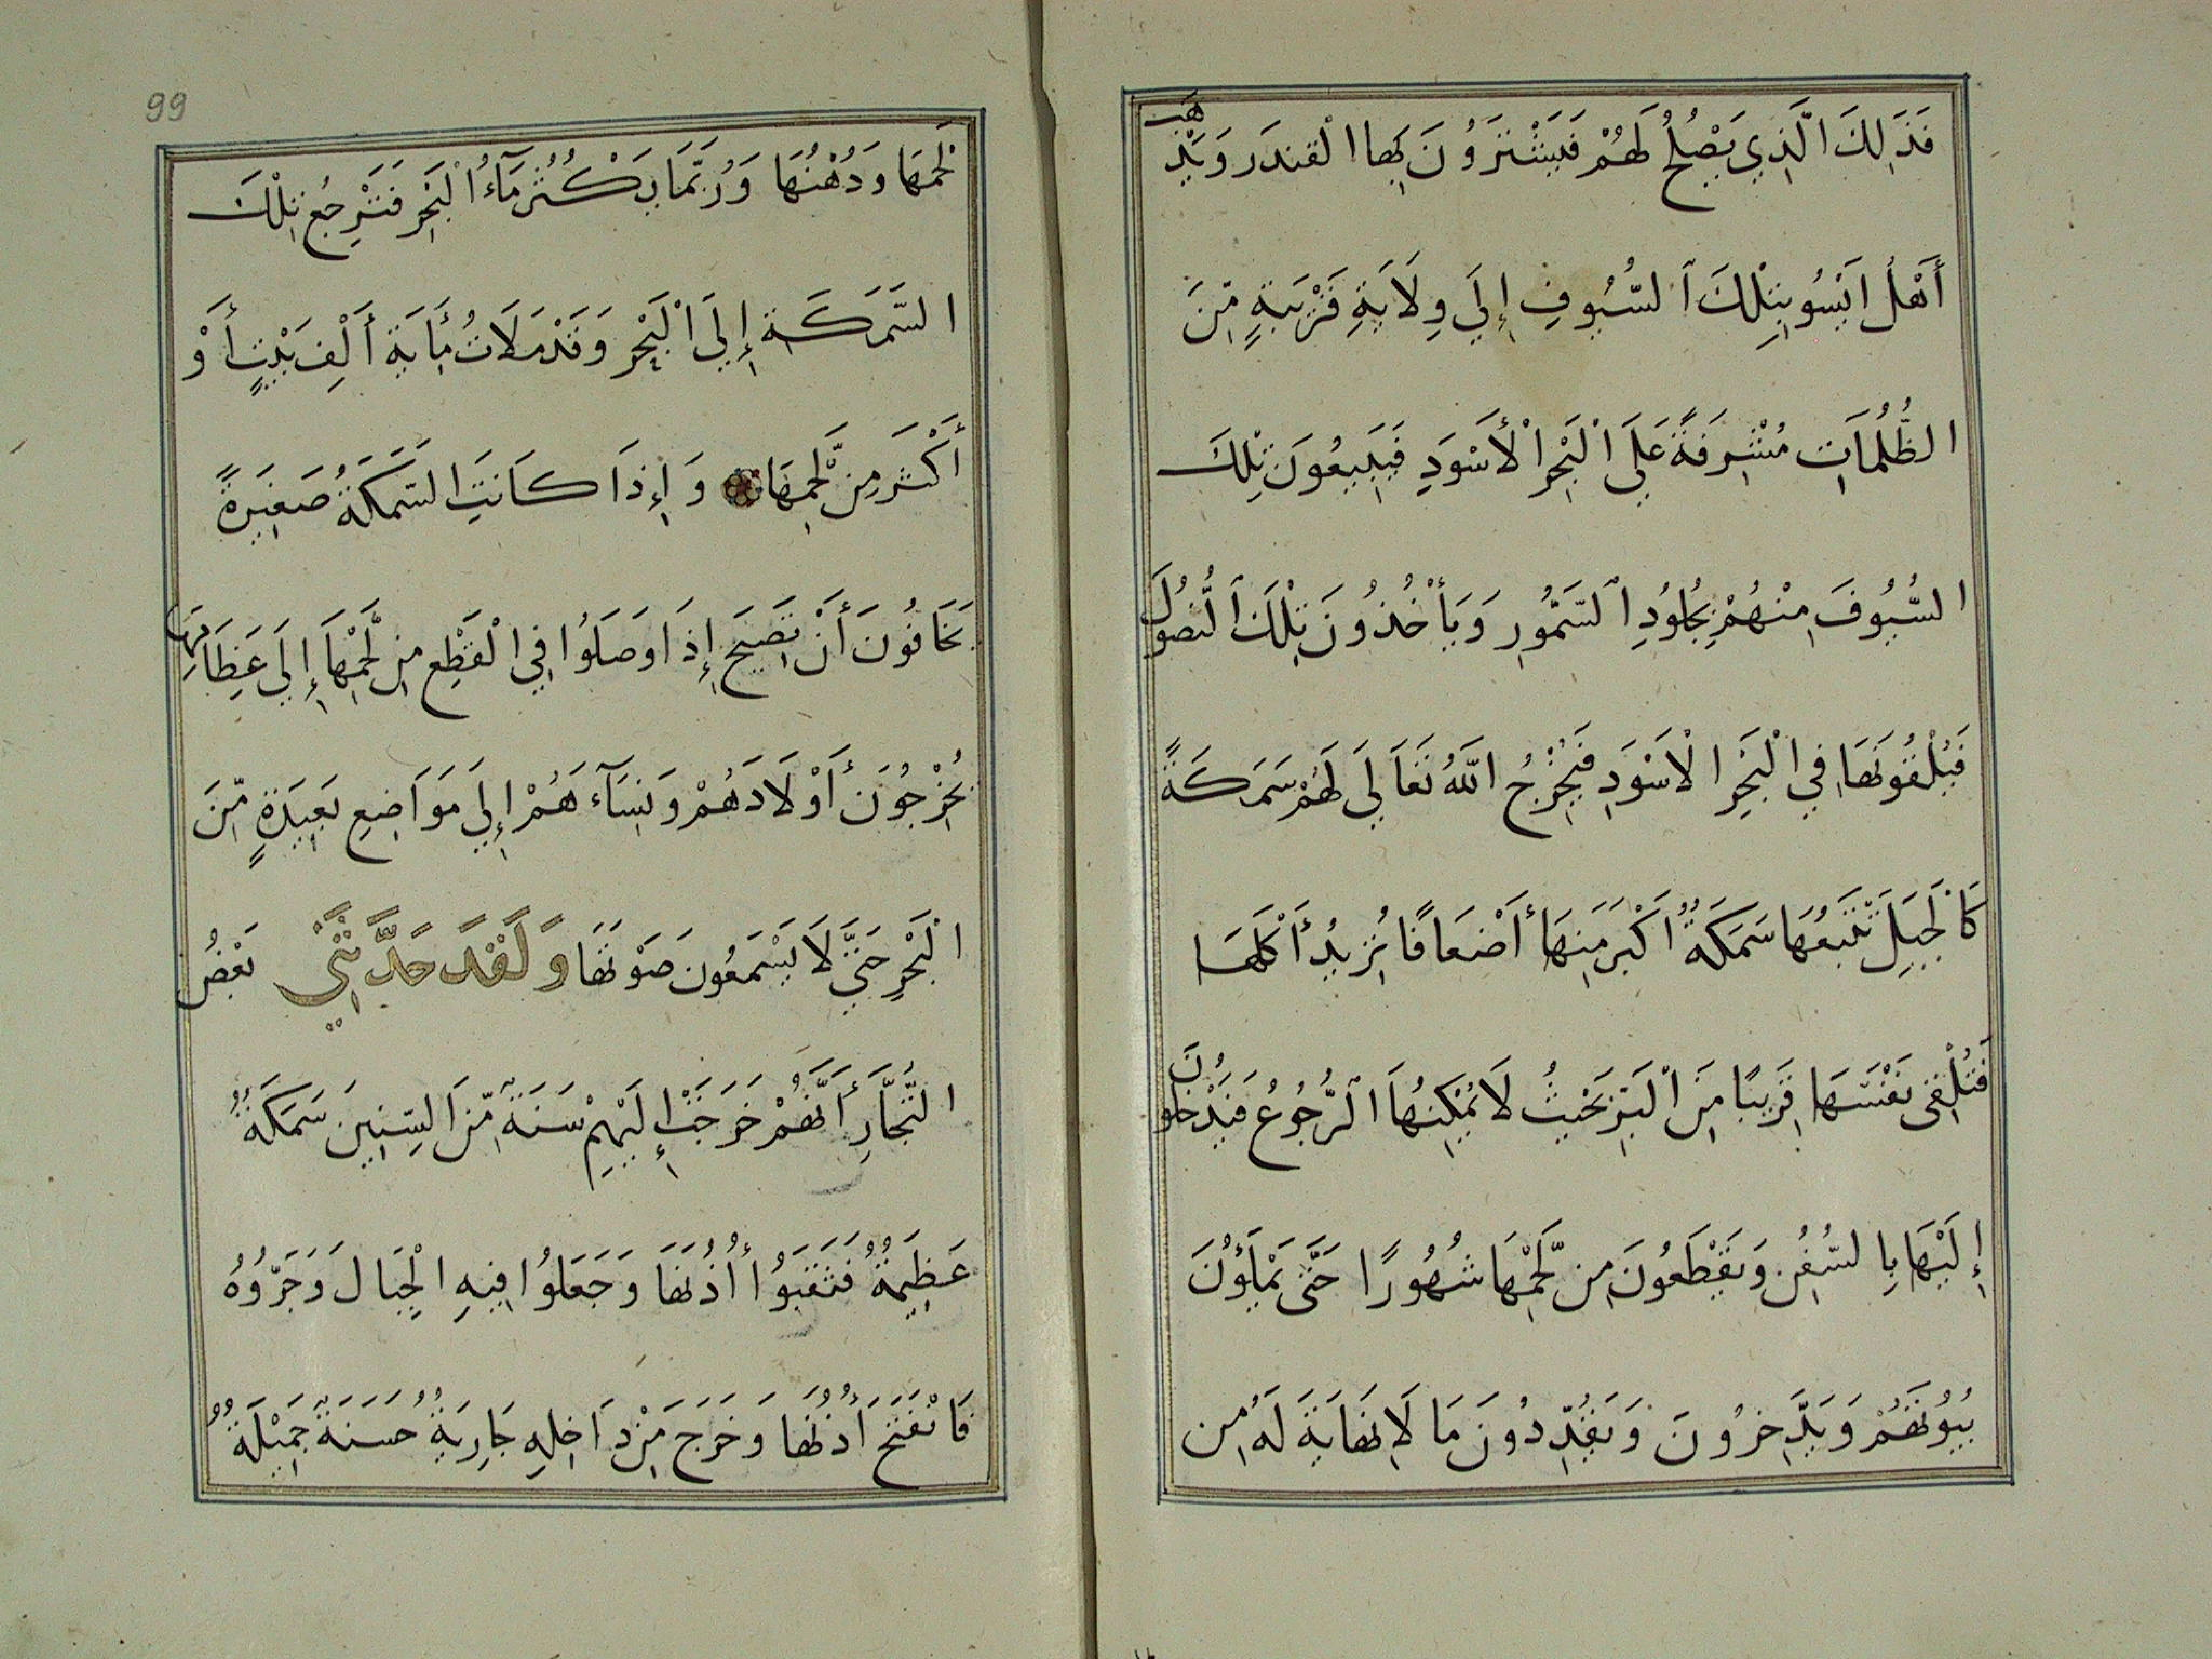 فَذَلِكَ الَّذِي يَصْلُحُ لَهُمْ فَيَشْتَرَوُنَ بِهَا الْقندَر وَيَذْهَب
أَهْلُ ايَسُو بِتِلْكَ السُّيُوفِ إِلَي وِلَايَةٍ قَرْيَبَةٍ مِّنَ
الظُّلُمَاتِ مُشْرِفَةً عَلَي الْبَحْرِ الْأَسْوَدِ فَيَبِيعُونَ تِلْكَ
السُّيُوفَ مِنْهُمْ بِجُلُودِ السَّمُّورِ وَيَأْخُذُونَ تِلْكَ النُّصُولَ
فَيُلْقُونَهَا فِي الْبَحِرِ الْاَسْوَدِ فَيُخْرِجُ اللّهُ تَعَالَي لَهُمْ سَمَكَةً
كَالْجَبَلِ تَتْبَعُهَا سَمَكَةُ أَكْبَر مِنْهَا أَضْعَافًا تُرِيدُ أَكْلَهَا
فَتُلْقِي نَفْسَهَا قَرِيبًا مِنَ الْبَرِّ بَحْيثُ لَا يُمْكِنُهَا الرُّجُوعُ فَيَدْخُلُونَ
إِلَيْهَا بِالسُّفُنِ وَيَقْطَعُونَ مِن لَّحْمِهَا شُهُورًا حَتَّى يَمْلَؤُنَ
بُيُوتَهُمْ وَيَدَّخِرُونَ وَيَقُدِّدُونَ مَا لَا نِهَايَةَ لَهُ مِن
99
لَحْمِهَا وَدُهْنُهَا وَرُبَّمَا يَكْثُرُ مَآءُ الْبَحْرِ فَتَرْجِعُ تِلْكَ
السَّمَكَةِ إِلَيَ الْبَحْرِ وَقَدْ مَلَاتُ مُاَيَة أَلْفِ بَيْتٍ أَوْ
أَكْثَر مِن لَّحْمِهَا وَإِذَا كَانَتِ السَّمَكَةُ صَغِيَرةً
يَخَافُونَ أَنْ تَصِيحَ إِذَا وَصَلُوا فِي الْقَطْعِ مِن لَّحْمِهَا إِلَي عَظِامَهِا
يُخْرِجُونَ أَوْلَادَهُمْ وَنِسَآءَهُمْ إِلَي مَوَاضِعِ بَعِيَدَةٍ مِّنَ
الْبَحْرِ حَتَّيَ لَا يَسْمَعُونَ صَوْتَهَا وَلَقَدَ حَدَّثَنِي بَعْضُ
التُّجَّارِ أَنَّهُمْ خَرَجَتْ إِلَيْهِمْ سَنَةً مِّنَ السِّنِينَ سَمَكَةُ
عَظِيَمةُ فَثَقَبَوُا أُذُنَهَا وَجَعَلُوا فِيهِ الْحِبَالَ وَجَرّوُهُ
فَانْفَتَحَ أُذُنُهَا وَخَرَجَ مِنْ دَاخِلِهِ جَارِيَةُ حَسَنَةً جَمِيْلَةُ